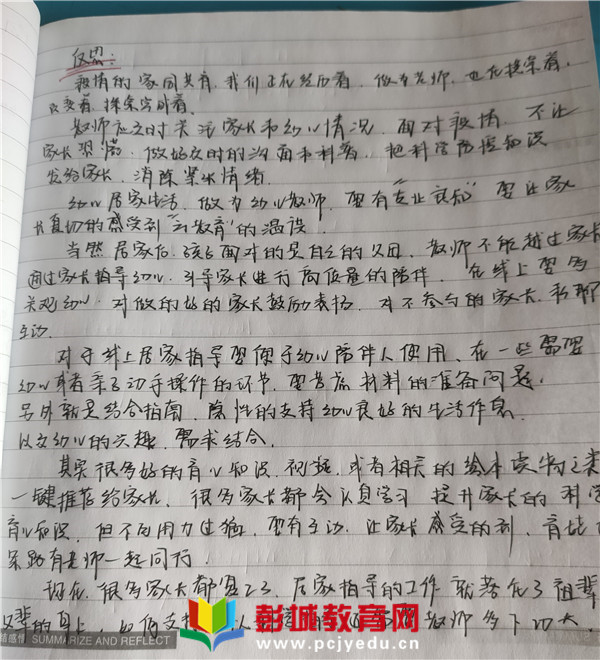 反思：
疫情的家园共育，我们正在经历着，做为老师，也在探索着，
及实着，探索实训着
教师应及时关注家长和幼儿情况，面对疫情，不让
家长恐慌，做好及时的沟通和科普，把科学防控知识
发给家长，消除紧张情绪
幼儿居家生活，做为幼儿教师，要有“专业良知”要让家
长真切的感受到“云教育”的温度
当然居家后，孩子面对的是自己的父母，教师不能越过家长
通过家长指导幼儿，引导家长进行高质量的陪伴，在线上要多
关观幼儿，对做的好的家长鼓励表扬，对不参与的家长，私聊
互动
对于线上居家指导要便于幼儿陪伴人使用，在一些需要
幼儿或者亲子动手操作的环节，要考虑材料的准备问题，
另外就是结合指南，隐性的支持幼儿良好的生活作息
以及幼儿的兴趣，需求结合
其实很多好的育儿知识，视频，或者相关的绘本读物之类
一键推荐给家长，很多家长都会认真学习，提升家长的科学
育儿知识，但不可用力过猛，要有互动，让家长感受的到，育儿
路有老师一起同行
现在，很多家长都复工了，居家指导的工作就落在了祖辈
父辈的身上，如何支持
教师多下功夫
结感悟 SUMMARIZE AND REFLECT
彭城教育网
www.pcjyedu.com